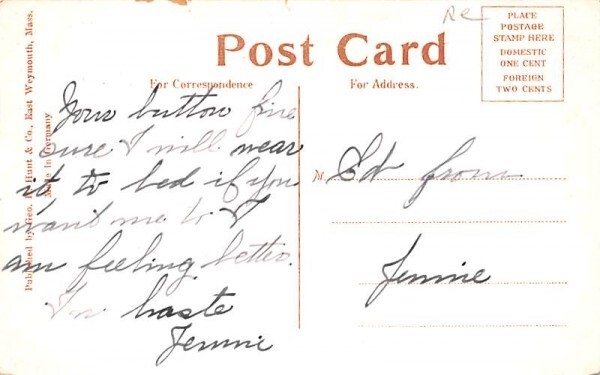 Re
PLACE
POSTAGE
STAMP HERE
DOMESTIC
ONE CENT
FOREIGN
TWO CENTS
Post Card
For Correspondence
For Address.
Published by Geo. Hunt & Co., East Weymouth, Mass.
Made in Germany
Your button fine
sure I will wear
it to bed if you
want me to I
am feeling better.
In haste
Jennie
Ed from
Jennie